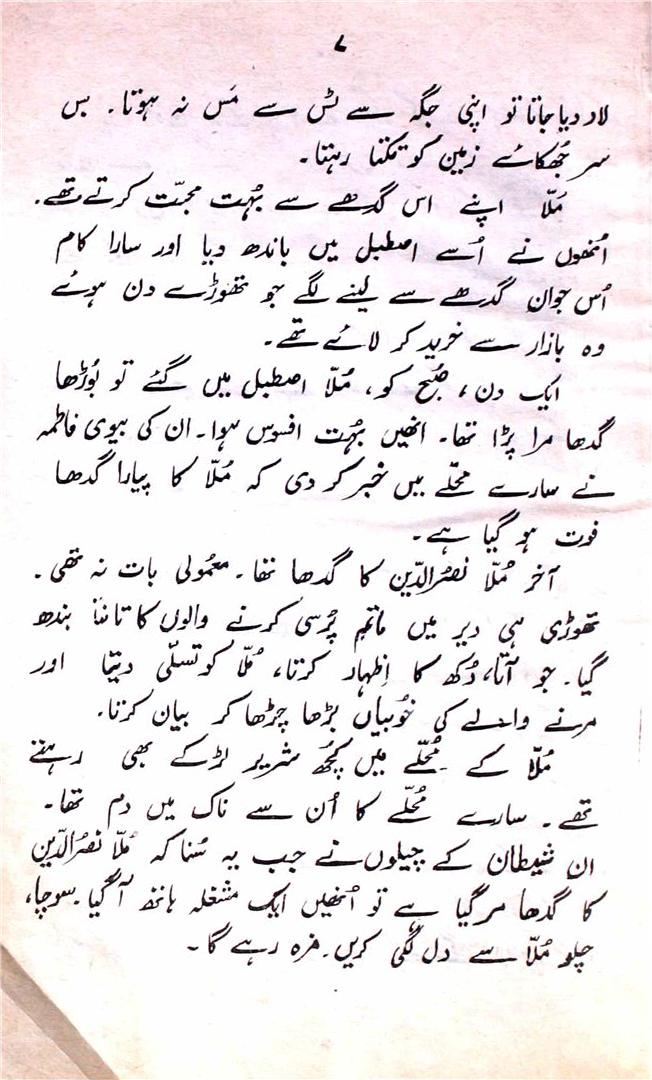 ۷
لاد دیا جاتا تو اپنی جگہ سے ٹس سے مَس نہ ہوتا۔ بس
سر جُھکائے زمین کو تکتا رہتا۔
مُلّا اپنے اس گدھے سے بہُت محبّت کرتے تھے۔
اُنھوں نے اُسے اصطبل میں باندھ دیا اور سارا کام
اُس جوان گدھے سے لینے لگے جو تھوڑے دن ہوئے
وہ بازار سے خرید کر لائے تھے۔
ایک دن، صُبح کو، مُلّا اصطبل میں گئے تو بُوڑھا
گدھا مرا پڑا تھا۔ انھیں بہُت افسوس ہوا۔ ان کی بیوی فاطمہ
نے سارے محلّے میں خبر کر دی کہ مُلّا کا پیارا گدھا
فوت ہو گیا ہے۔
آخر مُلّا نصرُالدّین کا گدھا تھا۔ معمُولی بات نہ تھی۔
تھوڑی ہی دیر میں ماتم پُرسی کرنے والوں کا تانتا بندھ
گیا۔ جو آتا، دُکھ کا اِظہار کرتا، مُلّا کو تسلّی دیتا اور
مرنے والے کی خُوبیاں بڑھا چڑھا کر بیان کرتا۔
مُلّا کے محُلّے میں کچُھ شریر لڑکے بھی رہتے
تھے۔ سارے محُلّے کا اُن سے ناک میں دم تھا۔
ان شیطان کے چیلوں نے جب یہ سُنا کہ مُلّا نصرُالدّین
کا گدھا مر گیا ہے تو اُنھیں ایک مشغلہ ہاتھ آ گیا۔ سوچا،
چلو مُلّا سے دل لگی کریں۔ مزہ رہے گا۔